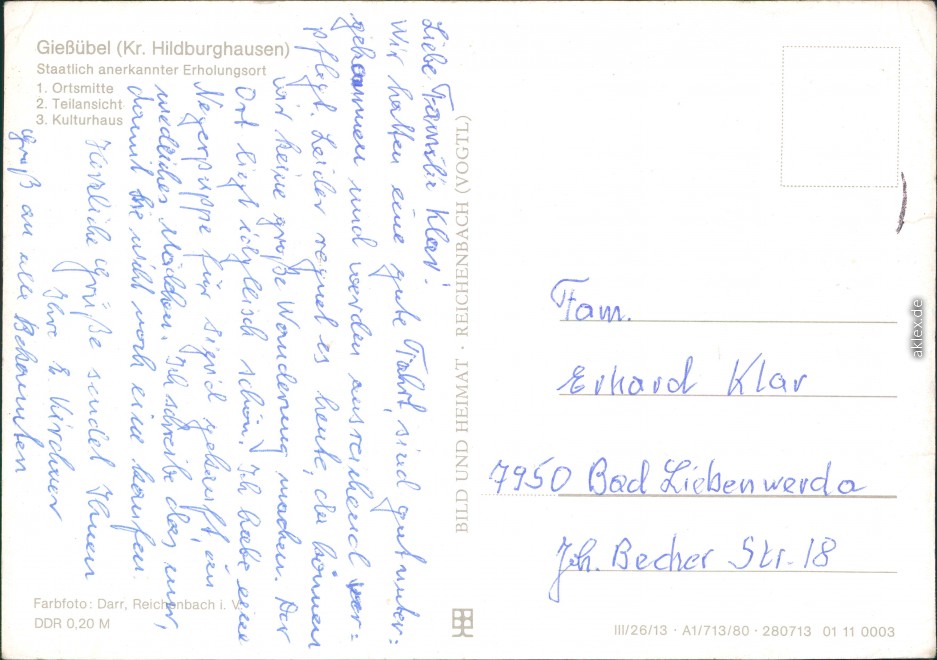 Gießübel (Kr. Hildburghausen)
Staatlich anerkannter Erholungsort
1. Ortsmitte
2. Teilansicht
3. Kulturhaus
Liebe Familie Klar!
Wir hatten eine gute Fahrt, sind gut unter=
gekommen und werden ausreichend ver=
pflegt. Leider regnet es heute, da können
wir keine große Wanderung machen. Der
Ort liegt idyllisch schön. Ich habe eine
Negerpuppe für Sigrid gekauft, ein
niedliches Mädchen. Ich schreibe das nur,
damit Sie nicht noch eine kaufen.
Herzliche Grüße sendet Ihnen
Ihre E. Kirchner
Gruß an alle Bekannten
Farbfoto: Darr, Reichenbach i. V.
DDR 0,20 M
BILD UND HEIMAT · REICHENBACH (VOGTL)
Fam.
Erhard Klar
7950 Bad Liebenwerda
Joh. Becher Str. 18
III/26/13 · A1/713/80 · 280713 01 11 0003
aklex.de